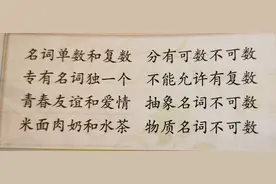 名词单数和复数 分有可数不可数
专有名词独一个 不能允许有复数
青春友谊和爱情 抽象名词不可数
米面肉奶和水茶 物质名词不可数